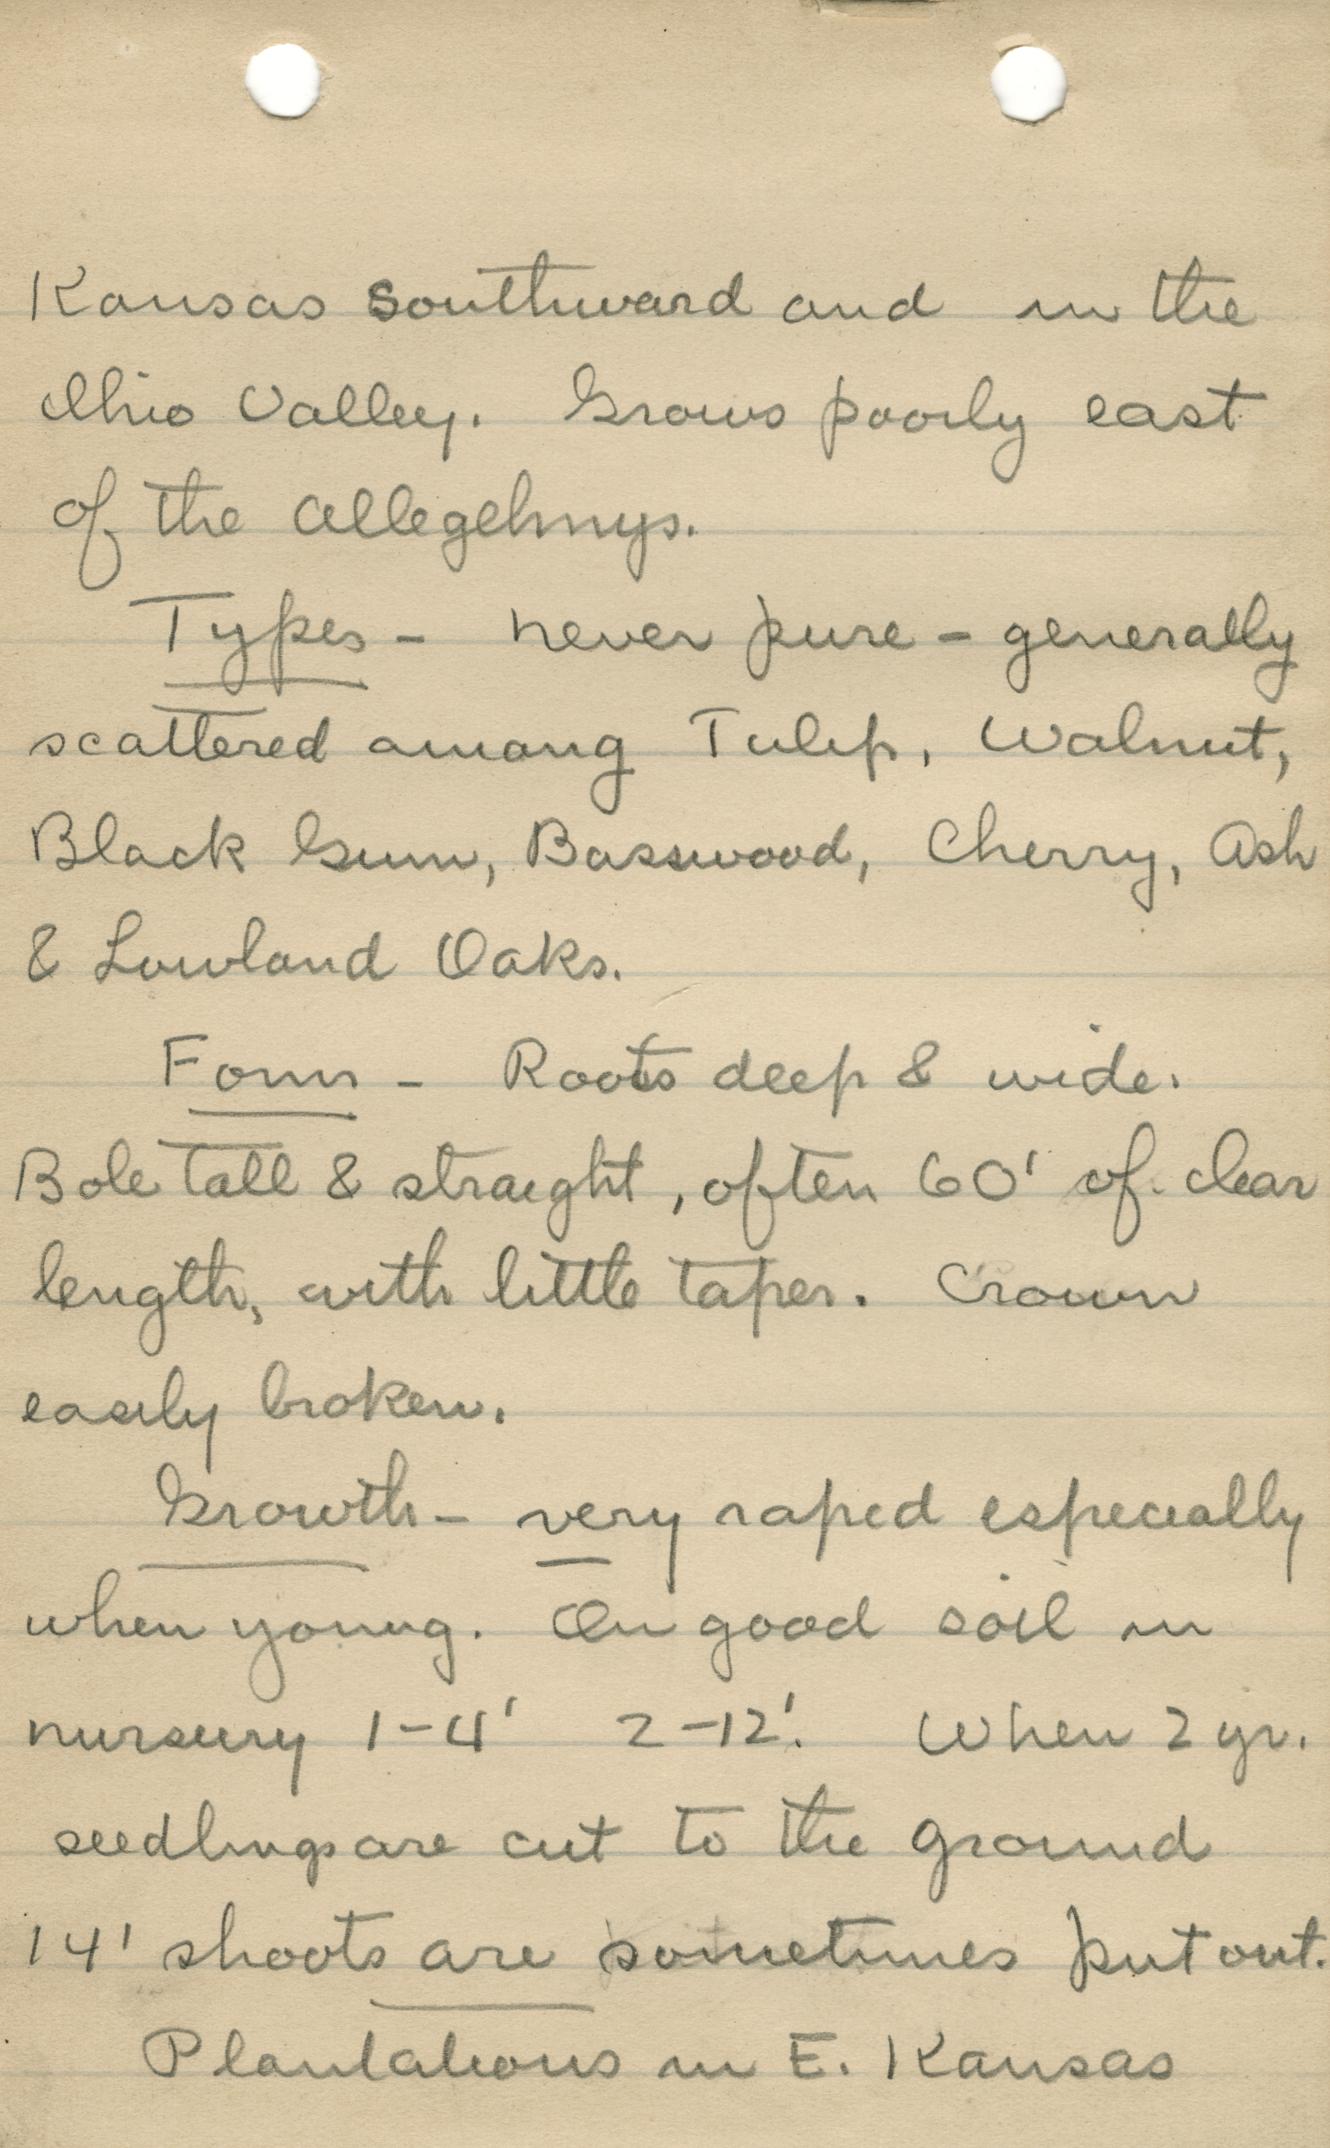 Kansas southward and in the
Ohio Valley. Grows poorly east
of the Allegehnys.
Types - never pure - generally
scattered among Tulip, Walnut,
Black Gum, Basswood, Cherry, Ash
& Lowland Oaks.
Form - Roots deep & wide.
Bole tall & straight, often 60' of clear
length, with little taper. Crown
easily broken.
Growth - very rapid especially
when young. On good soil in
nursery 1-4' 2-12'. When 2 yr.
seedlings are cut to the ground
14' shoots are sometimes put out.
Plantations in E. Kansas